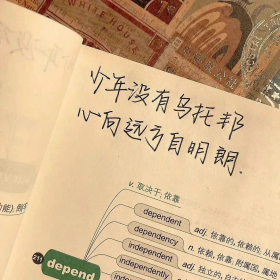 WHITE HOUSE
少年没有乌托邦
心向远方自明朗.
v. 取决于, 依靠
dependent adj. 依靠的, 依赖的; 从属
dependency n. 依赖, 依靠; 附属国, 属地
independent adj. 独立的, 自主
211
depend
independently